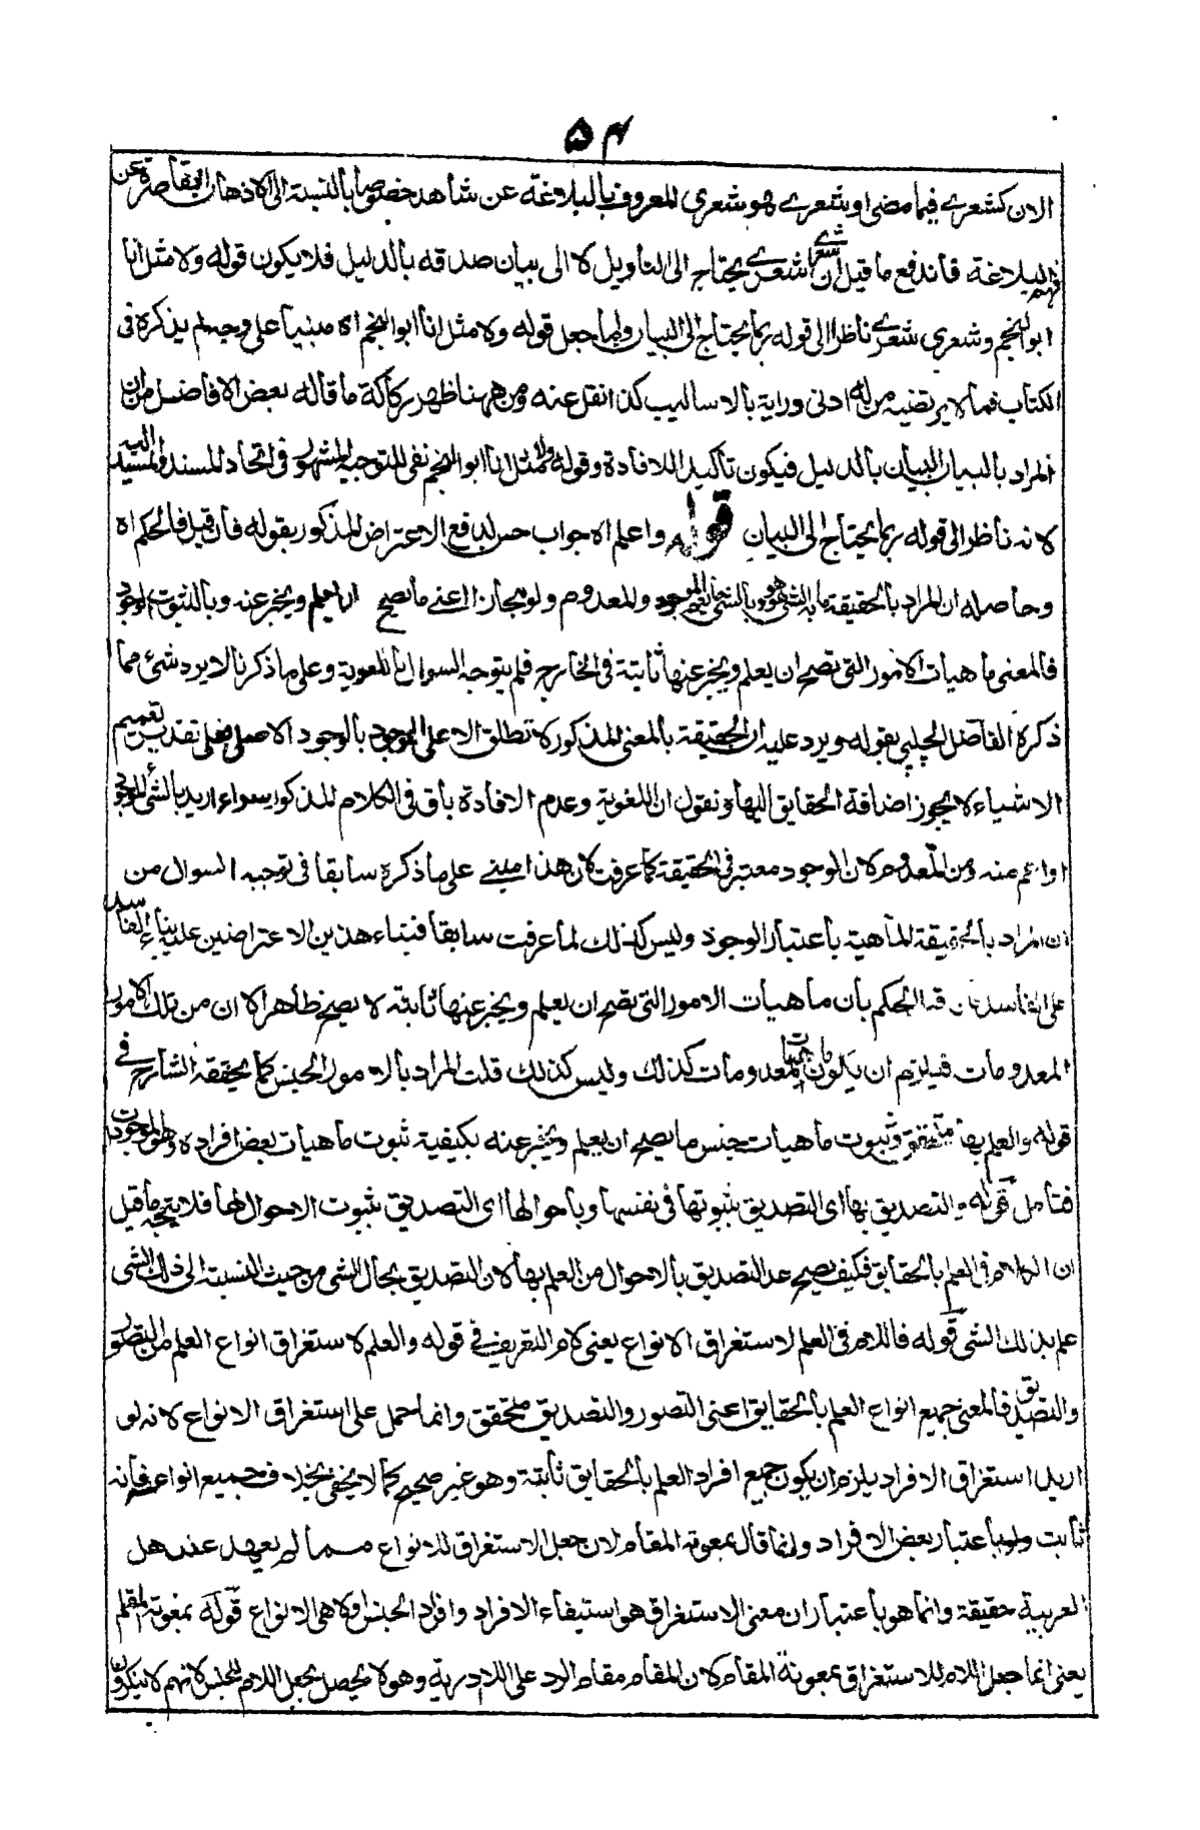 ۵۴
الان كشعري فيما مضى او شعري هو شعري المعروف بالبلاغة عن شاهد خصوصا بالنسبة الى الاذهان القاصرة عن
فهم البلاغة فاندفع ما قيل ان شعري شعري يحتاج الى التاويل لا الى بيان صدقه بالدليل فلا يكون قوله ولا مثل انا
ابو النجم وشعري شعري ناظرا الى قوله بما يحتاج الى البيان وانما جعل قوله ولا مثل انا ابو النجم اه مبنيا على وجه لم يذكره فى
الكتاب فما لا يرتضيه من له ادنى دراية بالاساليب كذا نقل عنه ومن ههنا ظهر ركاكة ما قاله بعض الافاضل من ان
المراد بالبيان البيان بالدليل فيكون تاكيدا للافادة وقوله ولا مثل انا ابو النجم نفى للتوجيه المشهور فى اتحاد المسند والمسند اليه
لا انه ناظر الى قوله ربما يحتاج الى البيان قوله واعلم الا جواب حسن لدافع الاعتراض المذكور بقوله فان قيل فالحكم اه
وحاصله ان المراد بالحقيقة ما به الشئ هو هو وبالشئ ما يعم الموجود والمعدوم ولو مجازا اعنى ما يصح ان يعلم ويخبر عنه وبالثبوت الوجود
فالمعنى ماهيات الامور التى تصح ان يعلم ويخبر عنها ثابتة فى الخارج فلم يتوجه السوال باللغوية وعلى ما ذكرنا لا يرد شئ مما
ذكره الفاضل الچلپى بقوله ويرد عليه ان الحقيقة بالمعنى المذكور لا تطلق الا على الموجود بالوجود الاصلى فعلى تقدير تعميم
الاشياء لا يجوز اضافة الحقايق اليها ونقول ان اللغوية وعدم الافادة باق فى الكلام المذكور سواء اريد بالشئ الموجود
او اعم منه ومن المعدوم لان الوجود معتبر فى الحقيقة كما عرفت لان هذا مبنى على ما ذكره سابقا فى توجيه السوال من
ان المراد بالحقيقة الماهية باعتبار الوجود وليس كذلك لما عرفت سابقا فبناء هذين الاعتراضين عليه بناء الفاسد
على الفاسد فان قلت الحكم بان ماهيات الامور التى تصح ان يعلم ويخبر عنها ثابتة لا يصح ظاهرا لان من تلك الامور
المعدومات فيلزم ان يكون ماهيات المعدومات كذلك وليس كذلك قلت المراد بالامور الجنس كما يحققه الشارح فى
قوله والعلم بها متحقق وثبوت ماهيات جنس ما يصح ان يعلم ويخبر عنه بكيفية ثبوت ماهيات بعض افراده وهو الموجودات
فتامل قوله والتصديق بها اى التصديق بثبوتها فى نفسها وباحوالها اى التصديق بثبوت الاحوال لها فلا يتجه ما قيل
ان الكلام فى العلم بالحقايق فكيف يصح عد التصديق بالاحوال من العلم بها لان التصديق بحال الشئ من حيث النسبة الى ذلك الشئ
علم بذلك الشئ قوله فاللام فى العلم لاستغراق الانواع يعنى لام التعريف فى قوله والعلم لاستغراق انواع العلم من التصور
والتصديق فالمعنى جميع انواع العلم بالحقايق اعنى التصور والتصديق متحقق وانما حمل على استغراق الانواع لانه لو
اريد استغراق الافراد يلزم ان يكون جميع افراد العلم بالحقايق ثابتة وهو غير صحيح كما لا يخفى بخلاف جميع انواعه فانه
ثابت ولو باعتبار بعض الافراد وانما قال بمعونة المقام لان جعل الاستغراق للانواع مما لم يعهد عند اهل
العربية حقيقة وانما هو باعتبار ان معنى الاستغراق هو استيفاء الافراد وافراد الجنس اولا هى الانواع قوله بمعونة المقام
يعنى انما جعل اللام للاستغراق بمعونة المقام لان المقام مقام الرد على اللاادرية وهو لا يحصل بجعل اللام للجنس لانهم لا ينكرون